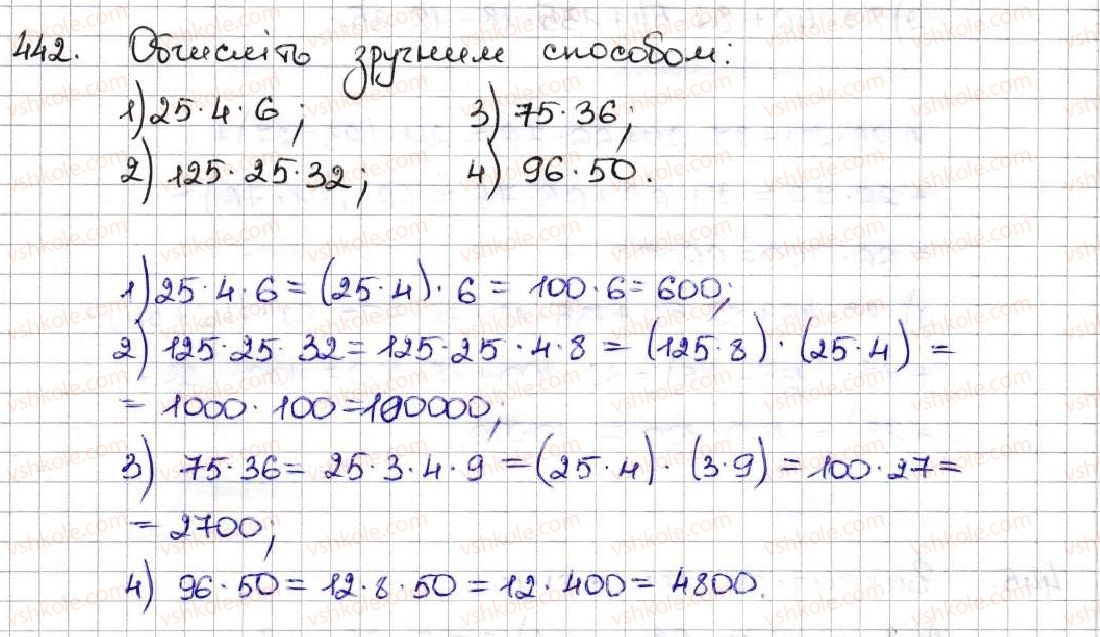 442. Обчисліть зручним способом:
1) 25·4·6; 3) 75·36;
2) 125·25·32; 4) 96·50.
1) 25·4·6 = (25·4)·6 = 100·6 = 600;
2) 125·25·32 = 125·25·4·8 = (125·8)·(25·4) =
= 1000·100 = 100000;
3) 75·36 = 25·3·4·9 = (25·4)·(3·9) = 100·27 =
= 2700;
4) 96·50 = 12·8·50 = 12·400 = 4800.
vshkole.com